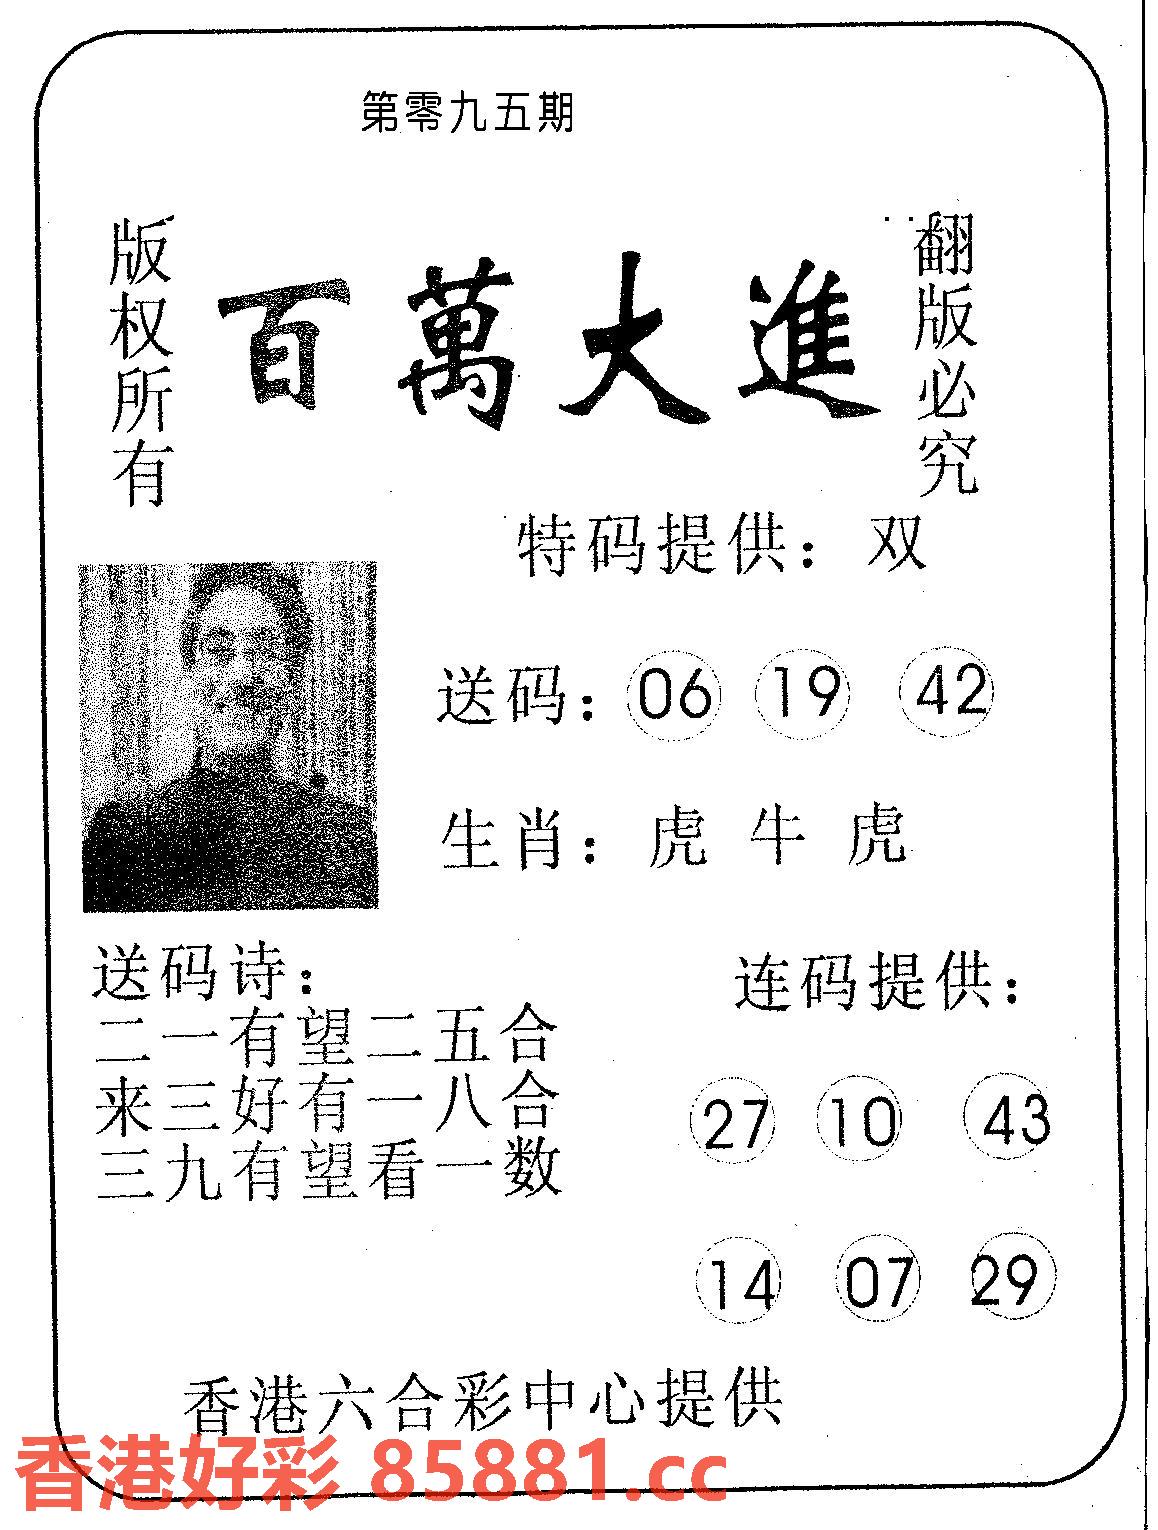 第零九五期
版权所有
百萬大進
翻版必究
特码提供：双
送码：06 19 42
生肖：虎 牛 虎
送码诗：
二一有望二五合
来三好有一八合
三九有望看一数
连码提供：
27 10 43
14 07 29
香港六合彩中心提供
香港好彩 85881.cc